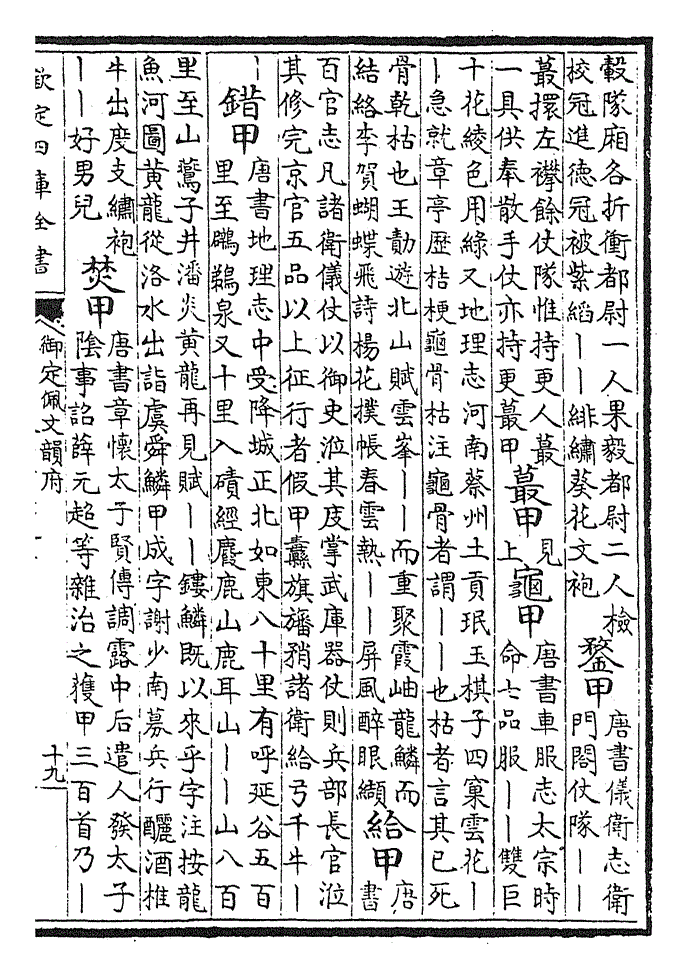 轂隊廂各折衝都尉一人果毅都尉二人檢
校冠進德冠被紫縚丨丨緋繡葵花文袍
鍪甲
唐書儀衛志衛
門閤仗隊丨丨
蕞擐左襻餘仗隊惟持更人蕞
一具供奉散手仗亦持更蕞甲
蕞甲
見
上
龜甲
唐書車服志太宗時
命七品服丨丨雙巨
十花綾色用綠又地理志河南蔡州土貢珉玉棋子四窠雲花丨
丨急就章亭歷桔梗龜骨枯注龜骨者謂丨丨也枯者言其已死
骨乾枯也王勣遊北山賦雲峯丨丨而重聚霞岫龍鱗而
結絡李賀蝴蝶飛詩楊花撲帳春雲熱丨丨屏風醉眼纈
給甲
唐
書
百官志凡諸衛儀仗以御史涖其庋掌武庫器仗則兵部長官涖
其修完京官五品以上征行者假甲纛旗旛矟諸衛給弓千牛丨
丨
錯甲
唐書地理志中受降城正北如東八十里有呼延谷五百
里至鸊鵜泉又十里入磧經麚鹿山鹿耳山丨丨山八百
里至山鷰子井潘炎黄龍再見賦丨丨鏤鱗既以來乎字注按龍
魚河圖黄龍從洛水出詣虞舜鱗甲成字謝少南募兵行釃酒椎
牛出度支繡袍
丨丨好男兒
焚甲
唐書章懷太子賢傳調露中后遣人發太子
陰事詔薛元超等雜治之獲甲三百首乃丨
欽定四庫全書
御定佩文韻府
十九